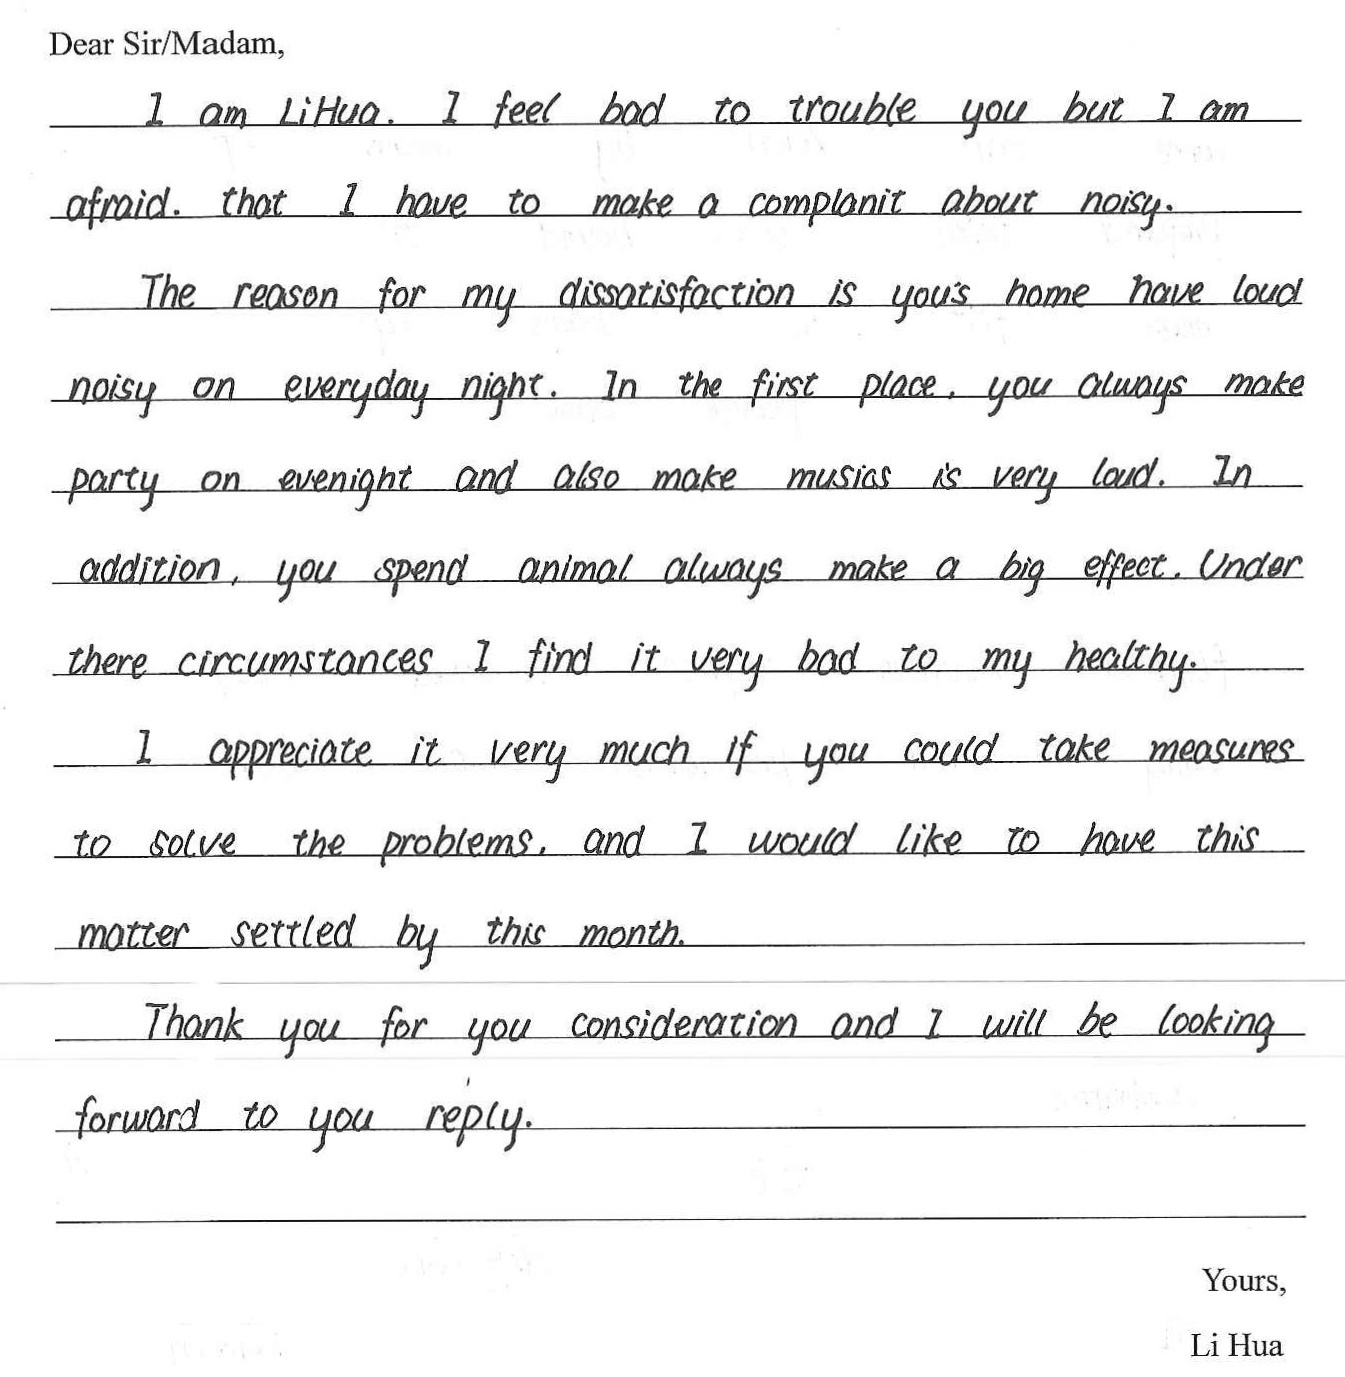 Dear Sir/Madam,
I am LiHua. I feel bad to trouble you but I am
afraid. that I have to make a complanit about noisy.
The reason for my dissatisfaction is you's home have loud
noisy on everyday night. In the first place, you always make
party on evenight and also make musics is very loud. In
addition, you spend animal always make a big effect. Under
there circumstances I find it very bad to my healthy.
I appreciate it very much if you could take measures
to solve the problems. and I would like to have this
matter settled by this month.
Thank you for you consideration and I will be looking
forward to you reply.
Yours,
Li Hua